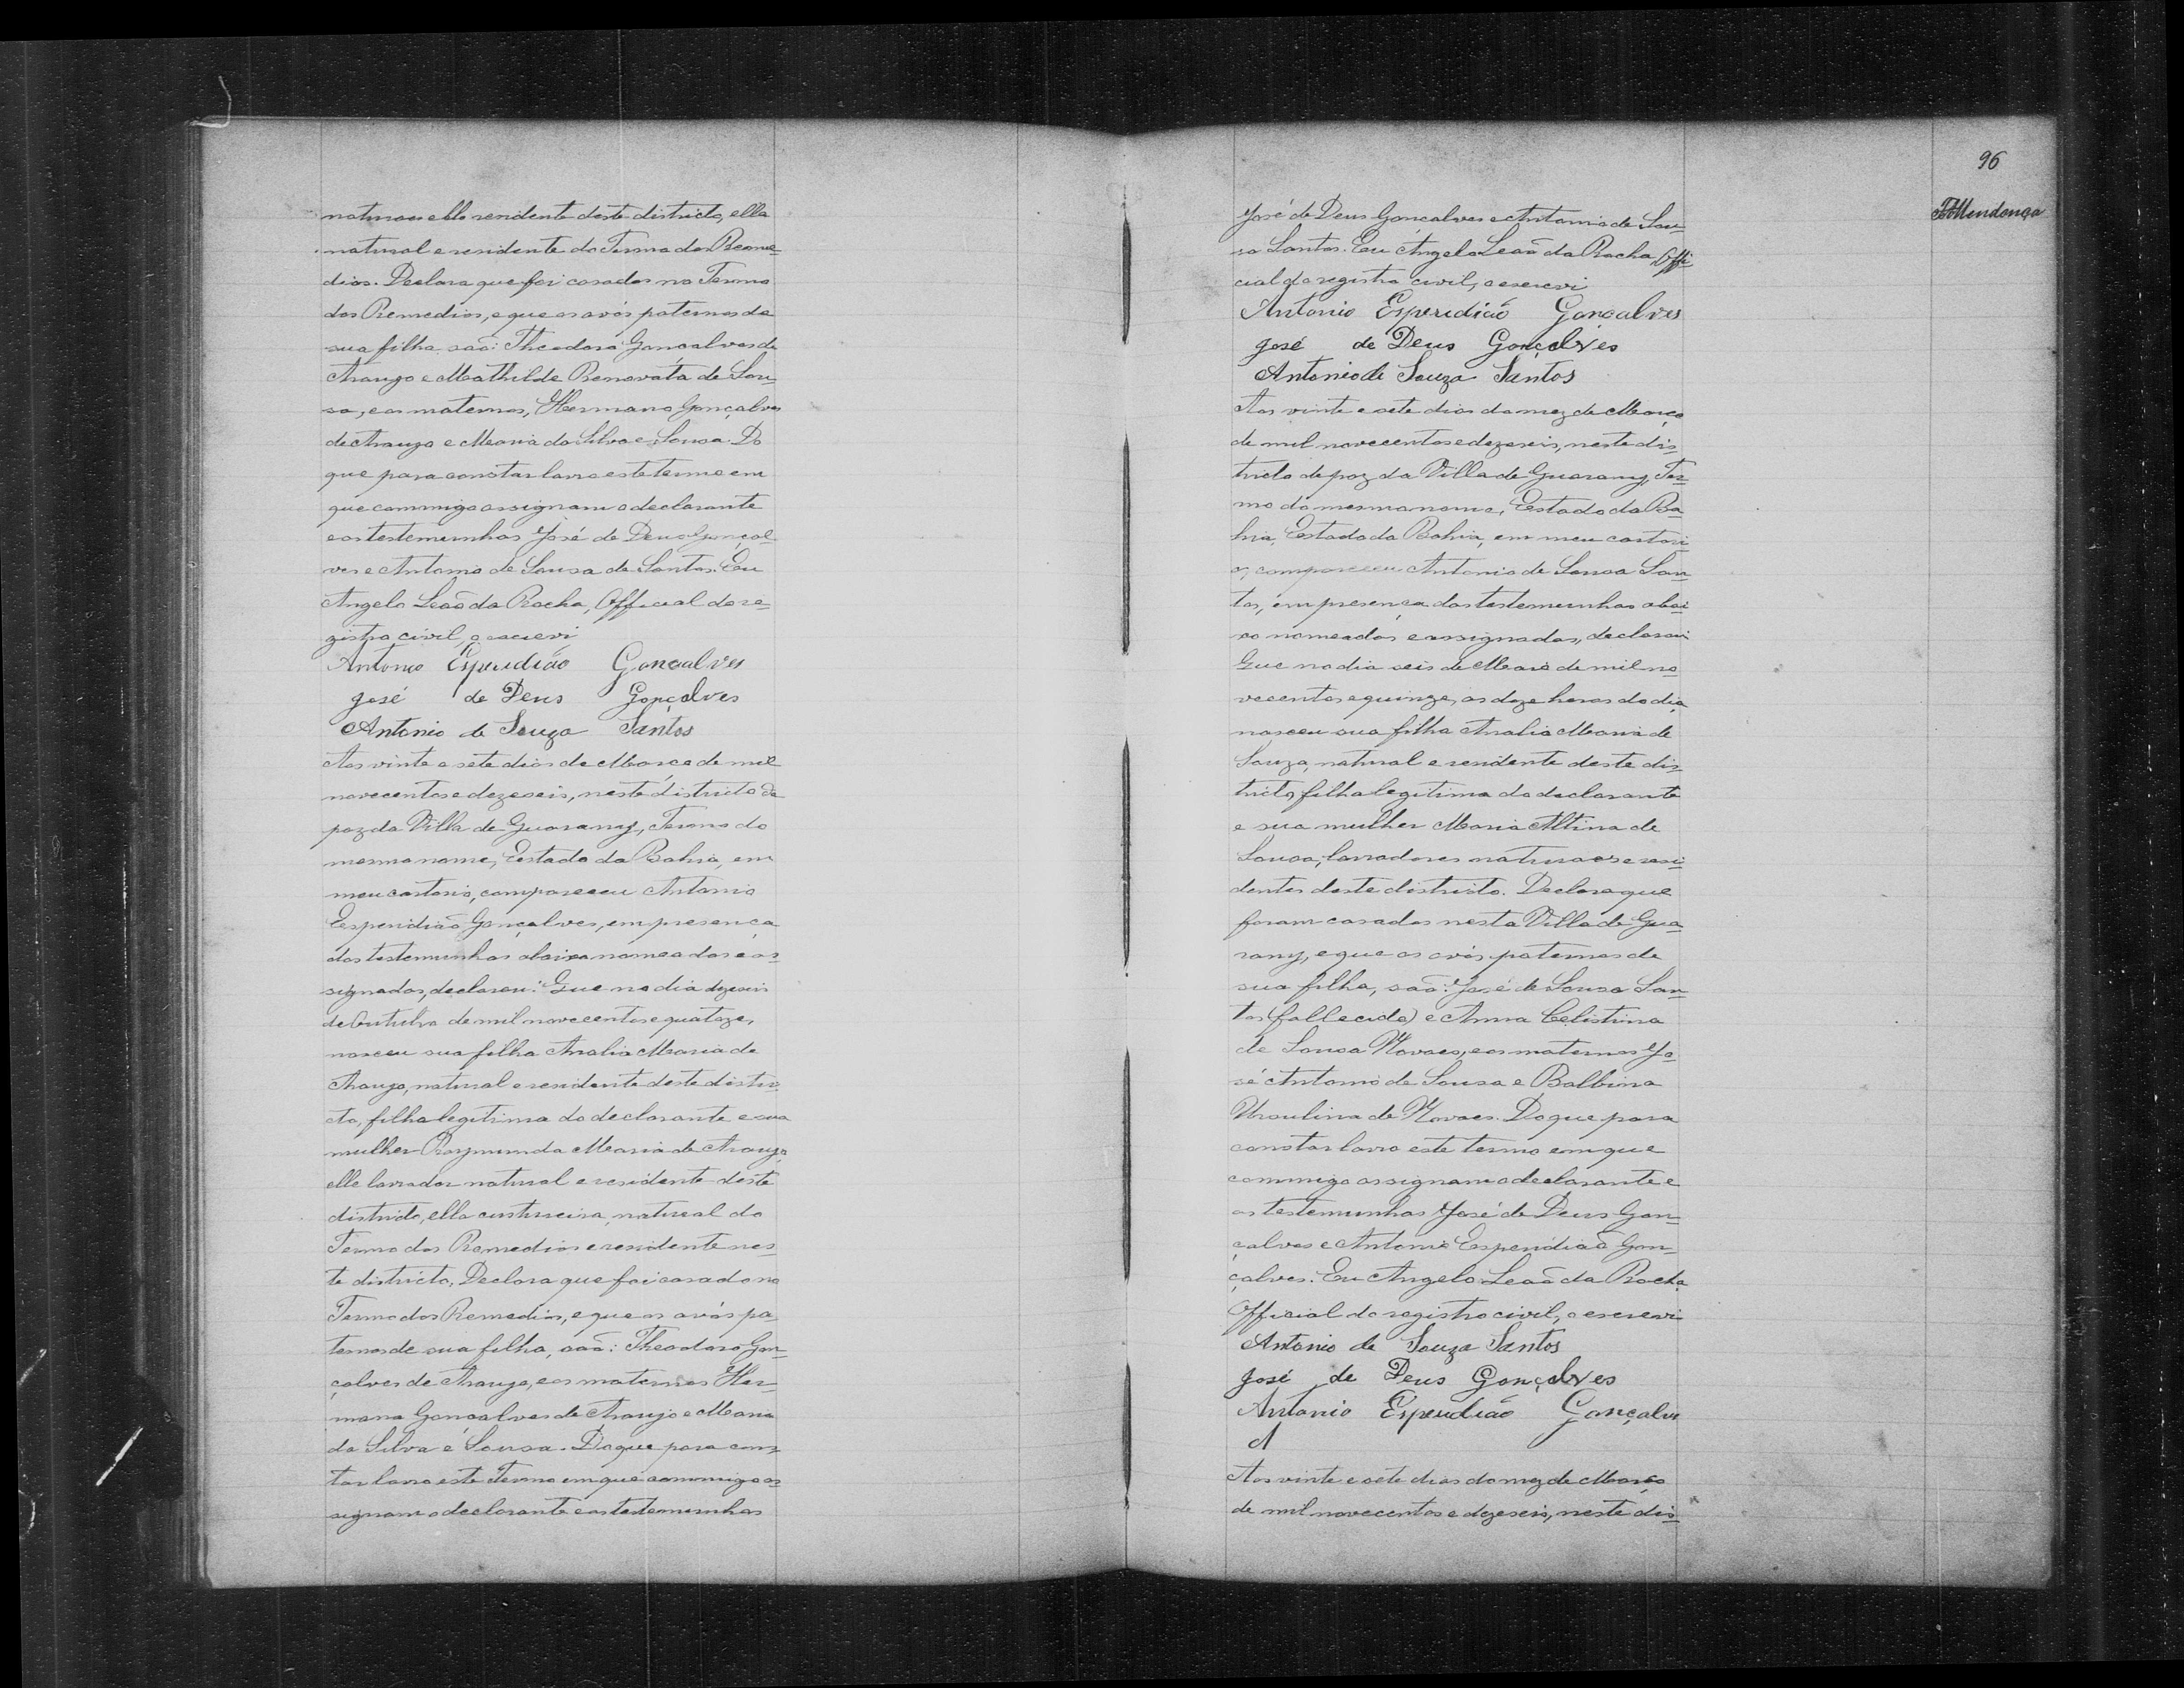 natural e elle residente deste districto, ella
natural e residente do Termo dos Reme-
dios. Declara que foi casados no Termo
dos Remedios, e que os avós paternos de
sua filha são: Theodoro Gonçalves de
Araujo e Mathilde Renovata de Sou-
sa, e os maternos, Hermano Gonçalves
de Araujo e Maria da Silva e Sousa. Do
que para constar lavro este termo em
que commigo assignam o declarante
e as testemunhas José de Deus Gonçal-
ves e Antonio de Sousa de Santos. Eu
Angelo Leão da Rocha, Official do re-
gistro civil, o escrevi
Antonio Esperidião Gonçalves
José de Deus Gonçalves
Antonio de Souza Santos
Aos vinte e sete dias de Março de mil
novecentos e dezeseis, neste districto de
paz da Villa de Guarany, Termo do
mesmo nome, Estado da Bahia, em
meu cartorio, compareceu Antonio
Esperidião Gonçalves, em presença
das testemunhas abaixo nomeadas e as-
signadas, declarou: Que no dia dezeseis
de Outubro de mil novecentos e quatoze,
nasceu sua filha Analia Maria de
Araujo, natural e residente deste distri-
cto, filha legitima do declarante e sua
mulher Raymunda Maria de Araujo,
elle lavrador natural e residente deste
districto, ella custureira, natural do
Termo dos Remedios e residente nes-
te districto. Declara que foi casado no
Termo dos Remedios, e que os avós pa-
ternos de sua filha, são: Theodoro Gon-
çalves de Araujo, e os maternos Her-
mano Gonçalves de Araujo e Maria
da Silva e Sousa. Do que para cons-
tar lavro este Termo em que commigo as-
signam o declarante e as testemunhas
96
Mendonça
José de Deus Gonçalves e Antonio de Sou-
sa Santos. Eu Angelo Leão da Rocha, Offi-
cial do registro civil, o escrevi
Antonio Esperidião Gonçalves
José de Deus Gonçalves
Antonio de Souza Santos
Aos vinte e sete dias do mez de Março
de mil novecentos e dezeseis, neste dis-
tricto de paz da Villa de Guarany, Ter-
mo do mesmo nome, Estado da Ba-
hia, Estado da Bahia, em meu cartori-
o, compareceu Antonio de Sousa San-
tos, em presença das testemunhas abai-
xo nomeadas e assignadas, declarou
Que no dia seis de Maio de mil no-
vecentos e quinze, as doze horas do dia,
nasceu sua filha Analia Maria de
Souza, natural e residente deste dis-
tricto, filha legitima do declarante
e sua mulher Maria Altina de
Sousa, lavradores naturaes e resi-
dentes deste districto. Declara que
foram casados nesta Villa de Gua-
rany, e que os avós paternos de
sua filha, são: José de Sousa San-
tos (fallecido) e Anna Celistina
de Sousa Novaes, e os maternos Jo-
sé Antonio de Sousa e Balbina
Ursulina de Novaes. Do que para
constar lavro este termo em que
commigo assignam o declarante e
as testemunhas José de Deus Gon-
çalves e Antonio Esperidião Gon-
çalves. Eu Angelo Leão da Rocha
Official do registro civil, o escrevi
Antonio de Souza Santos
José de Deus Gonçalves
Antonio Esperidião Gonçalves
A
Aos vinte e sete dias do mez de Março
de mil novecentos e dezeseis, neste dis-